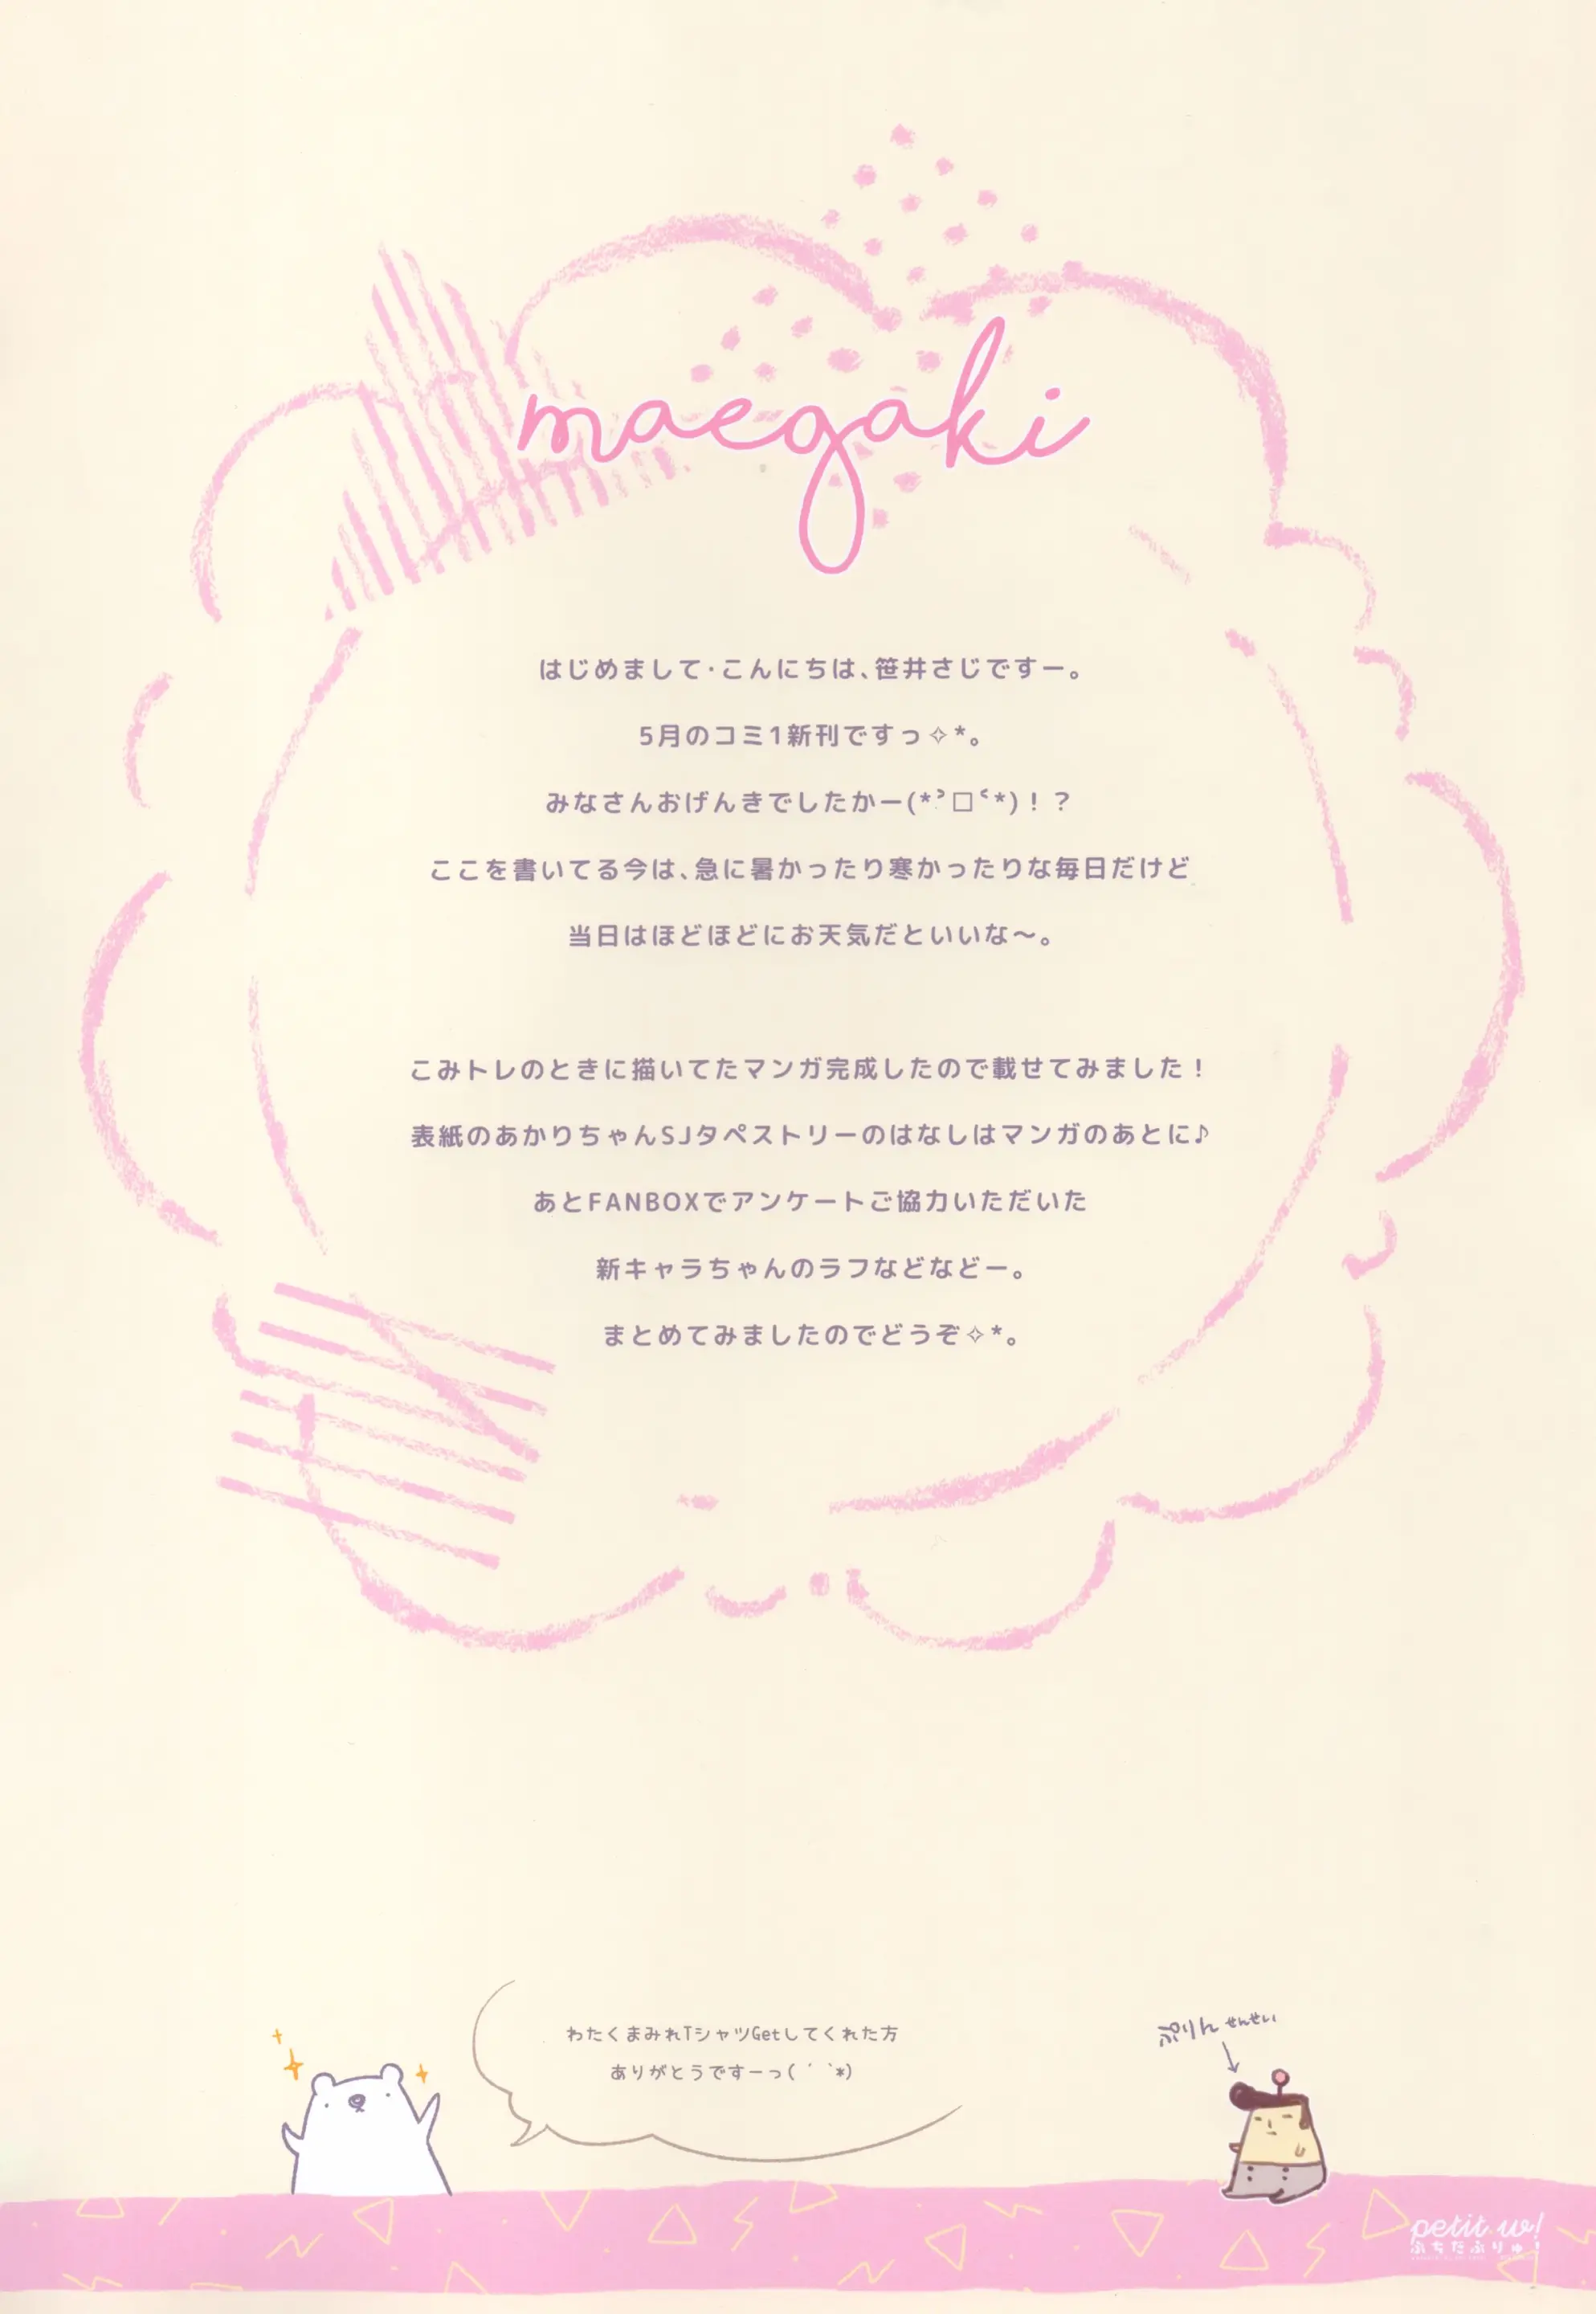 maegaki
はじめまして・こんにちは、笹井さじですー。
5月のコミ1新刊ですっ✧*。
みなさんおげんきでしたかー(*˃̵□˂̵*)！？
ここを書いてる今は、急に暑かったり寒かったりな毎日だけど
当日はほどほどにお天気だといいな～。
こみトレのときに描いてたマンガ完成したので載せてみました！
表紙のあかりちゃんSJタペストリーのはなしはマンガのあとに♪
あとFANBOXでアンケートご協力いただいた
新キャラちゃんのラフなどなどー。
まとめてみましたのでどうぞ✧*。
わたくまみれTシャツGetしてくれた方
ありがとうですーっ( ´ `*)
ぷりんせんせい
petit.w!
ぷちだぶりゅ！